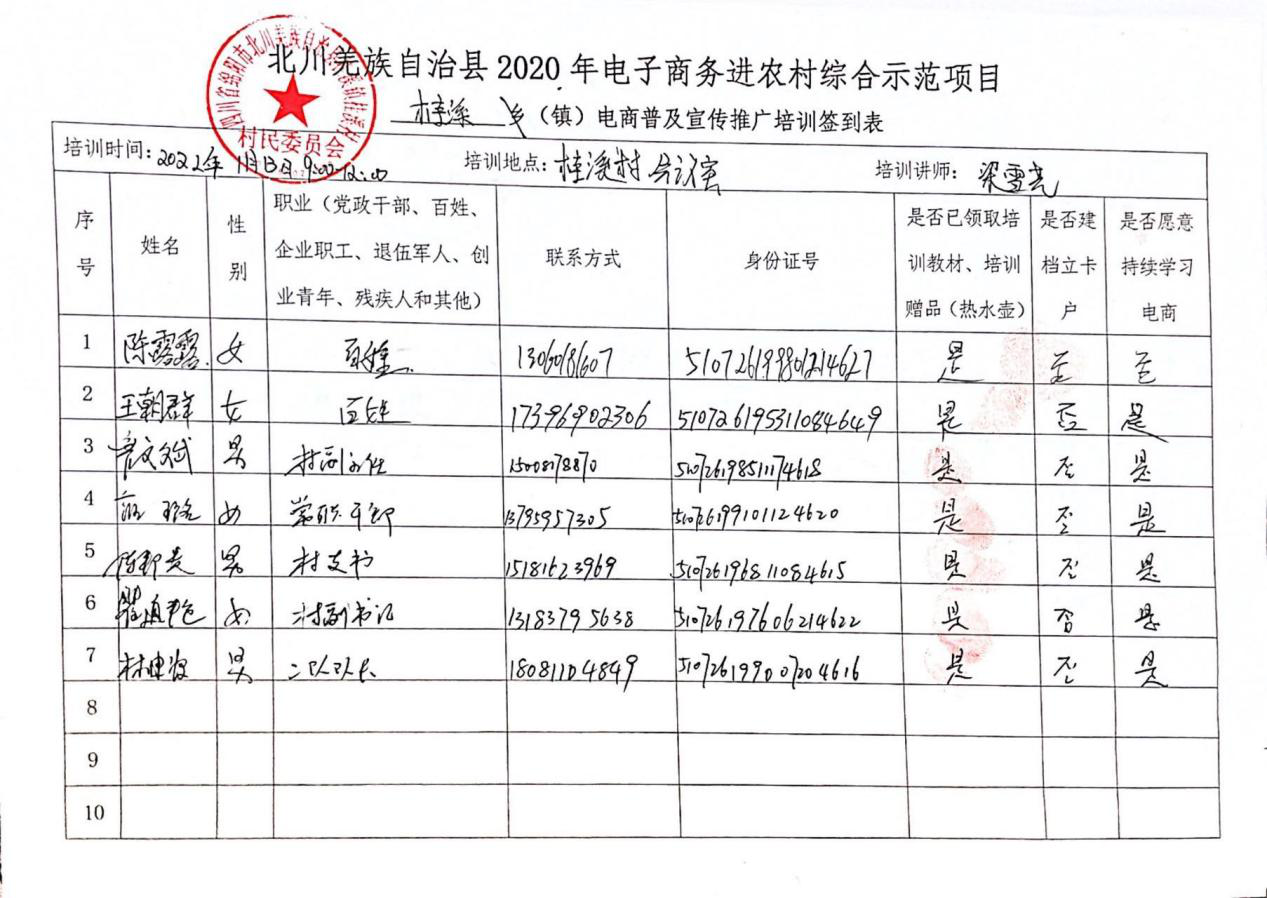 北川羌族自治县2020年电子商务进农村综合示范项目
桂溪 乡（镇）电商普及宣传推广培训签到表
四川省绵阳市北川羌族自治县
村民委员会
培训时间：2022年1月13日9:00-12:00 培训地点：桂溪村会议室 培训讲师：梁雪亮
序号 姓名 性别 职业（党政干部、百姓、企业职工、退伍军人、创业青年、残疾人和其他） 联系方式 身份证号 是否已领取培训教材、培训赠品（热水壶） 是否建档立卡户 是否愿意持续学习电商
1 陈露露 女 百姓 1306081607 是 否 否
2 王朝群 女 百姓 17396902306 510726195311084649 是 否 是
3 男 村副主任 1500878870 是 否 是
4 女 常职干部 13795957305 510726199101124620 是 否 是
5 男 村支书 15181623969 510726196811084615 是 否 是
6 女 村副书记 13183795638 510726197606214622 是 否 是
7 男 二队队长 18081104849 510726199007204616 是 否 是
8
9
10